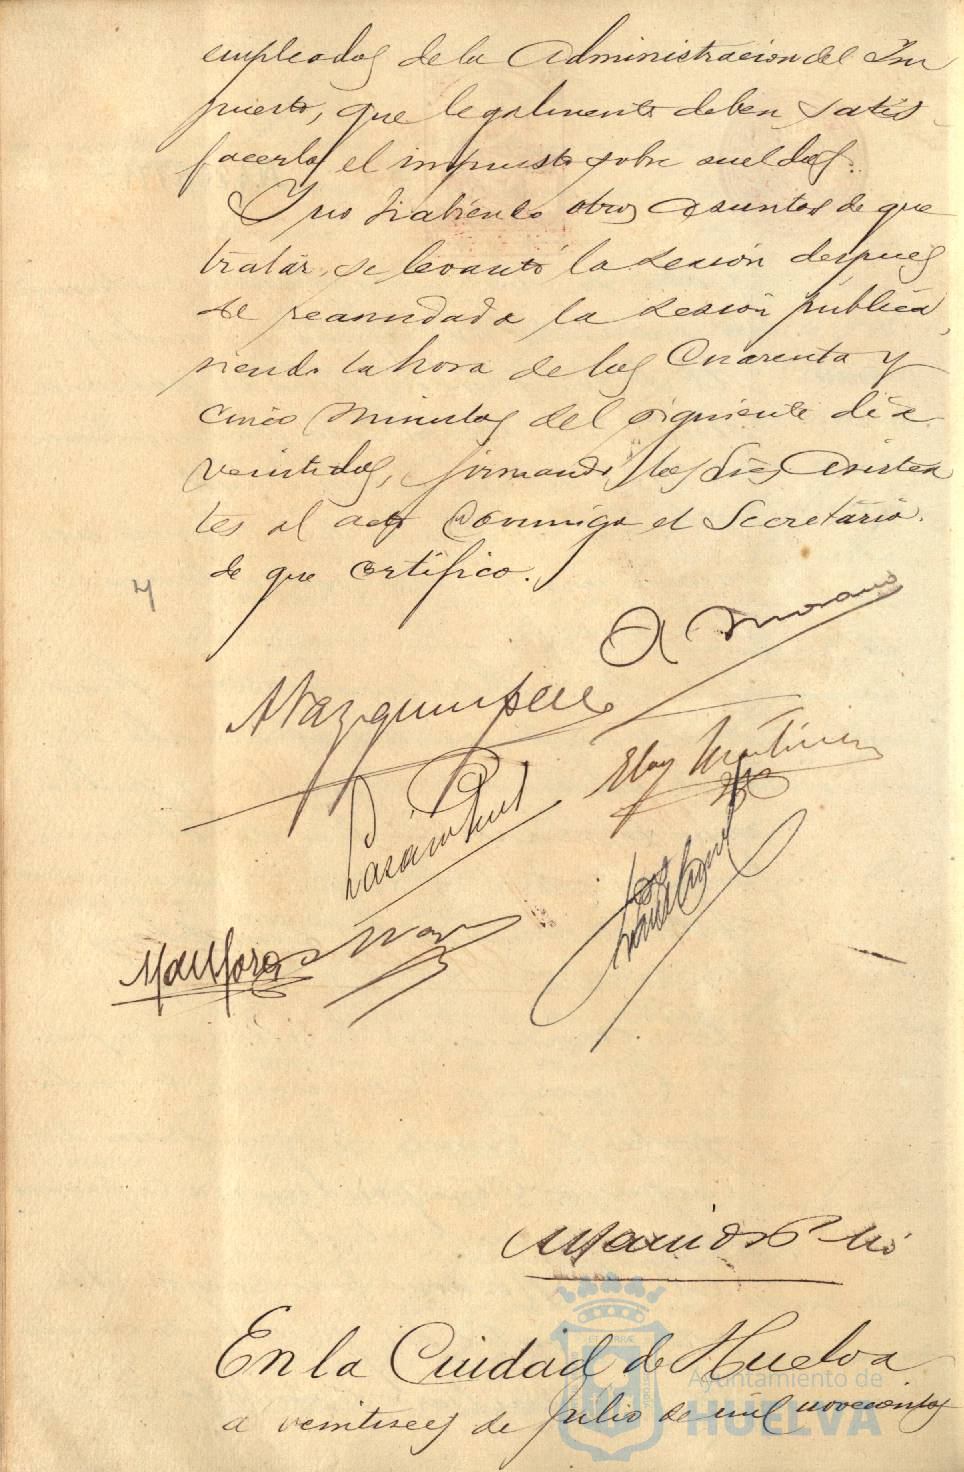 empleados de la Administracion del Im
puesto, que legalmente deben satis
facerlos el impuesto sobre sueldos.
Y no habiendo otros asuntos de que
tratar, se levantó la sesión después
de reanudada la sesión pública,
siendo la hora de las Cuarenta y
cinco minutos del siguiente dia
veintidos, firmando los Sres Asisten
tes al acto conmigo el Secretario.
de que certifico.
A Morano
A Vazquez
Eloy Martinez
En la Ciudad de Huelva
a veintiseis de Julio de mil novecientos
Ayuntamiento de
HUELVA